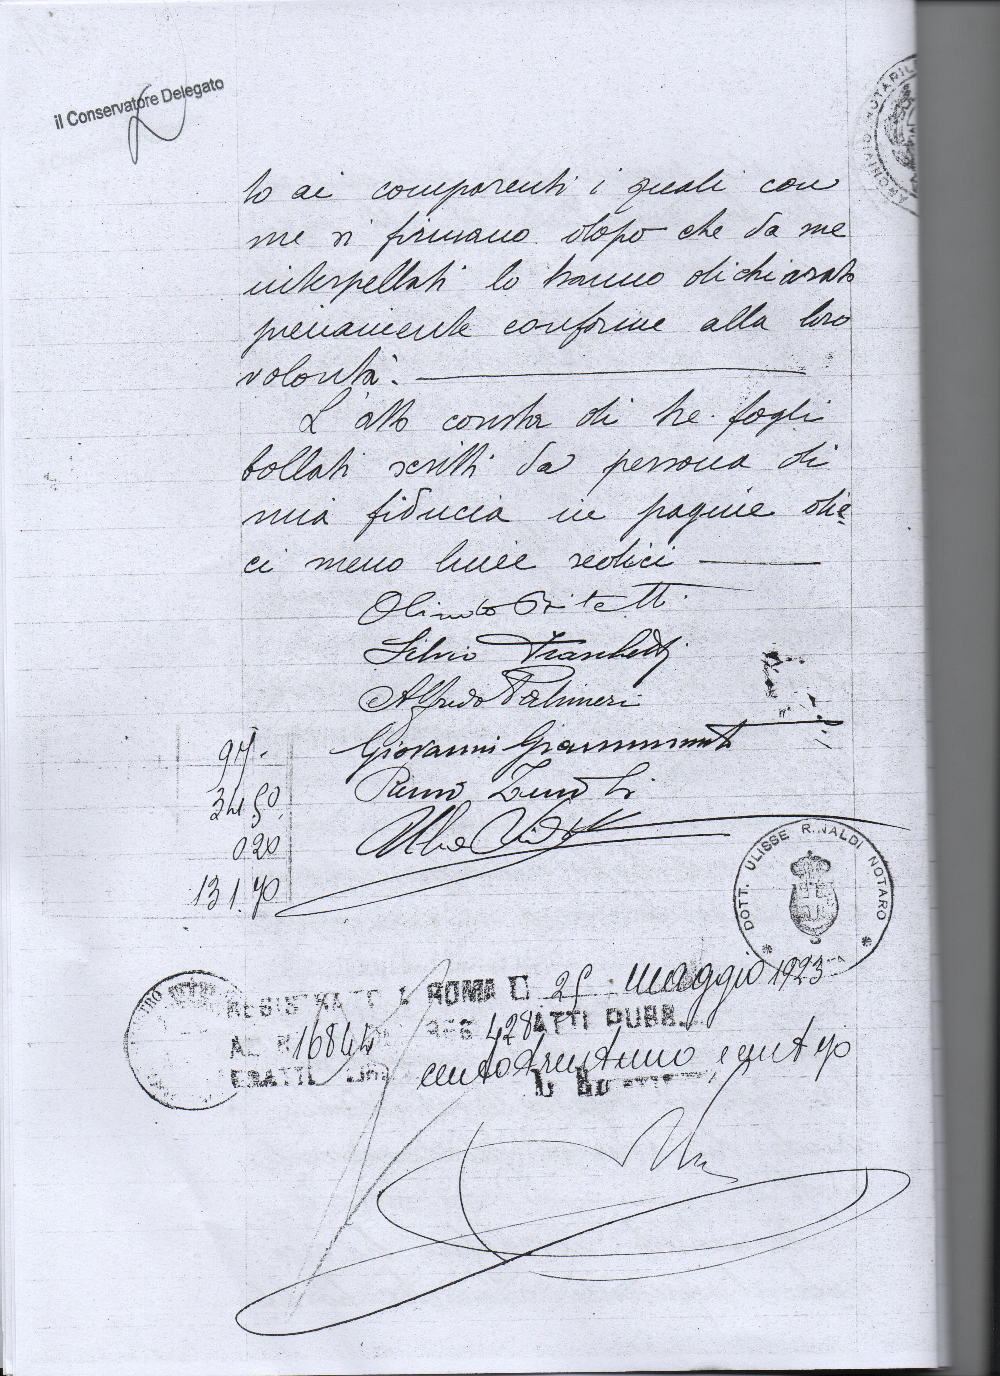 il Conservatore Delegato
ARCHIVIO NOTARIL
to ai comparenti i quali con
me si firmano dopo che da me
interpellati lo hanno dichiarato
pienamente conforme alla loro
volontà.
L'atto consta di tre fogli
bollati scritti da persona di
mia fiducia in pagine die=
ci meno linee sedici
Silvio
Alfredo Palmieri
Giovanni
97.-
34.50
0.20
131.70
DOTT. ULISSE RINALDI NOTARO
REGISTRATO A ROMA 25 maggio 1923
16844 428 ATTI PUBB.
centotrentuno e cent 70